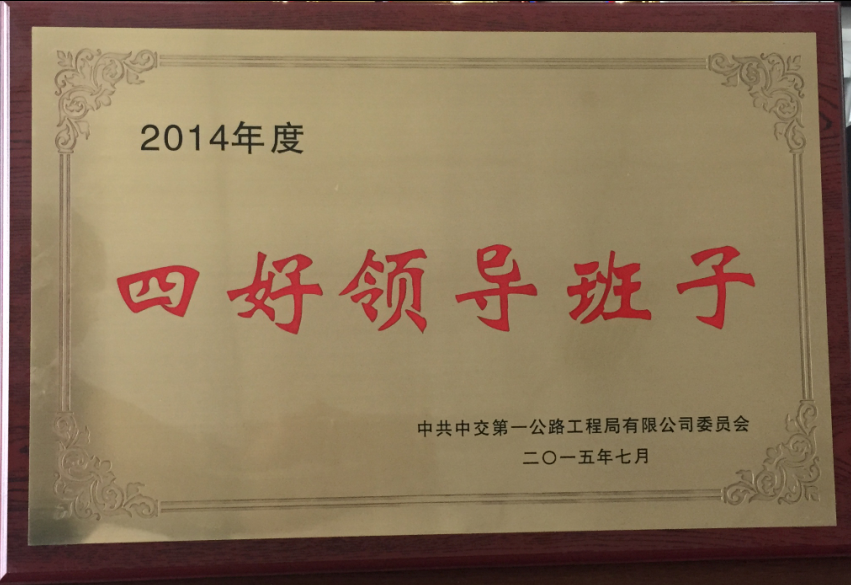 2014年度
四好领导班子
中共中交第一公路工程局有限公司委员会
二〇一五年七月